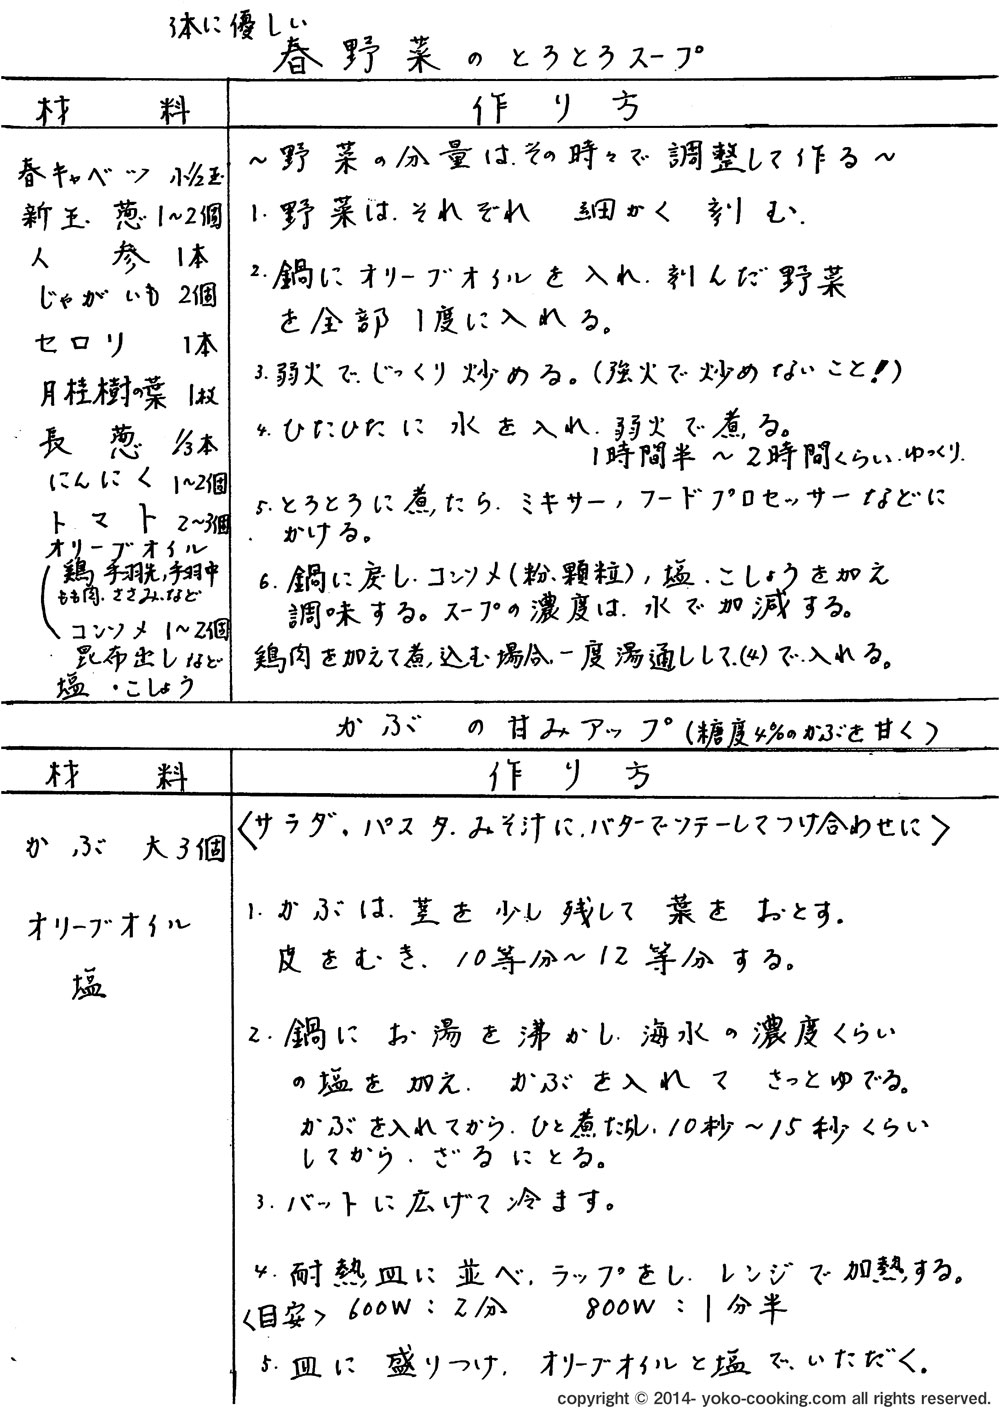 体に優しい
春野菜のとろとろスープ
材料
作り方
春キャベツ 小1/2玉
新玉葱 1~2個
人参 1本
じゃがいも 2個
セロリ 1本
月桂樹の葉 1枚
長葱 1/3本
にんにく 1~2個
トマト 2~3個
オリーブオイル
(鶏 手羽先,手羽中
もも肉、ささみ、など
コンソメ 1~2個
昆布出しなど
塩・こしょう
~野菜の分量は、その時々で調整して作る~
1. 野菜は、それぞれ 細かく刻む、
2. 鍋にオリーブオイルを入れ、刻んだ野菜
を全部1度に入れる。
3. 弱火で、じっくり炒める。(強火で炒めないこと!)
4. ひたひたに水を入れ、弱火で煮る。
1時間半~2時間くらい、ゆっくり、
5. とろとろに煮たら、ミキサー,フードプロセッサーなどに
かける。
6. 鍋に戻し、コンソメ(粉、顆粒),塩、こしょうを加え
調味する。スープの濃度は、水で加減する。
鶏肉を加えて煮込む場合、一度湯通しして、(4)で、入れる。
かぶの甘みアップ(糖度4%のかぶを甘く)
材料
作り方
かぶ 大3個
オリーブオイル
塩
〈サラダ、パスタ、みそ汁に、バターでソテーしてつけ合わせに〉
1. かぶは、茎を少し残して葉をおとす。
皮をむき、10等分~12等分する。
2. 鍋にお湯を沸かし、海水の濃度くらい
の塩を加え、かぶを入れてさっとゆでる。
かぶを入れてから、ひと煮たちし、10秒~15秒くらい
してから、ざるにとる。
3. バットに広げて冷ます。
4. 耐熱皿に並べ、ラップをし、レンジで加熱する。
〈目安〉 600W:2分 800W:1分半
5. 皿に盛りつけ、オリーブオイルと塩で、いただく。
copyright © 2014- yoko-cooking.com all rights reserved.